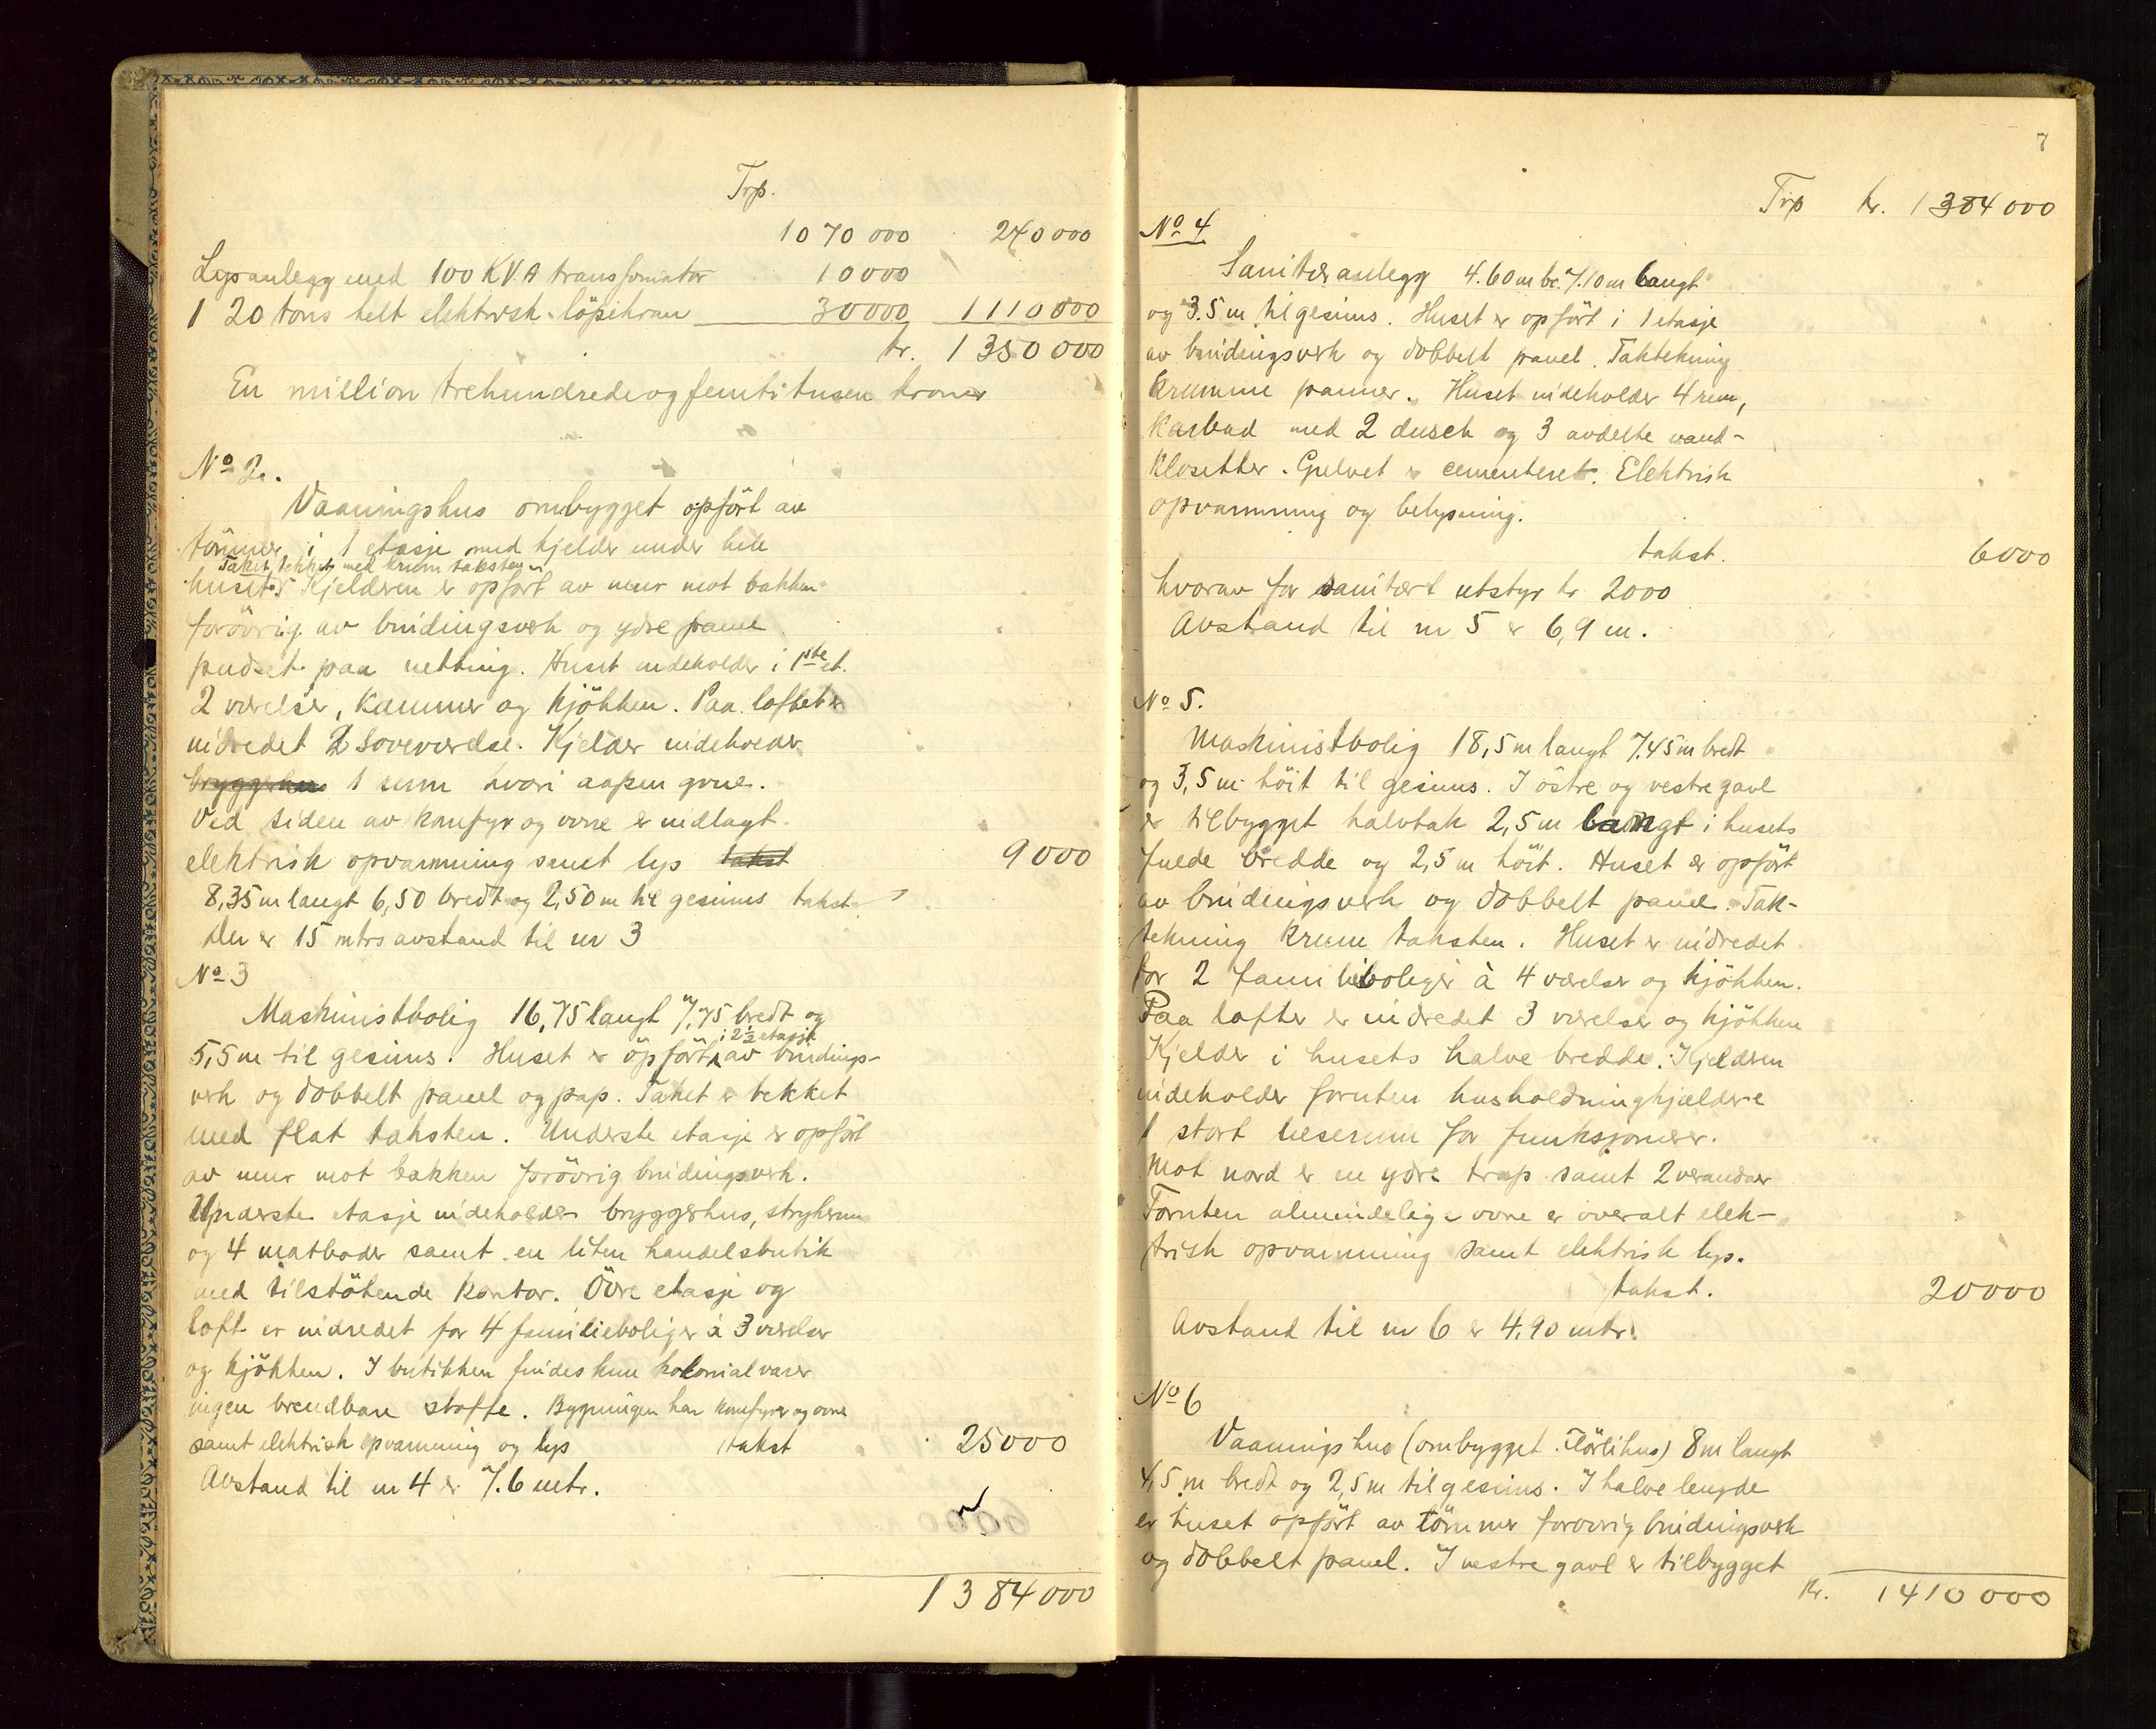 Trp.
1070000 240000
Lysanlegg med 100 KV.A transformator 10000
1 20 tons helt elektrisk löpekran 30000 1110000
kr. 1350000
En million trehundredeogfemti tusen kroner
No 2.
Vaaningshus ombygget opfört av
tömmer i 1 etasje med kjelder under hele
Taket tekket med krum taksten
huset. Kjelderen er opfört av mur mot bakken
forövrig av bindingsverk og ydre panel
pudset paa netting. Huset indeholder i 1ste et.
2 værelser, Kammer og kjökken. Paa loftet er
indredet 2 Soveværelse. Kjelder indeholder
bryggehus 1 rum hvori aapen grue.
Ved siden av komfyr og ovne er indlagt
elektrisk opvarmning samt lys takst 9000
8,35 m langt 6,50 bredt og 2,50 m til gesims takst
Der er 15 mtrs avstand til nr 3
No 3
Maskinistbolig 16,75 langt 7,75 bredt og
i 2½ etasje
5,5 m til gesims. Huset er opfört av bindings-
verk og dobbelt panel og pap. Taket er tekket
med flat taksten. Underste etasje er opfört
av mur mot bakken forövrig bindingsverk.
Underste etasje indeholder bryggerhus, strykerum
og 4 matboder samt en liten handelsbutik
med tilstötende Kontor. Övre etasje og
loft er indredet for 4 familieboliger à 3 værelser
og kjökken. I butikken findes kun kolonialvarer
ingen brendbare stoffe. Bygningen har komfyrer og ovne
samt elektrisk opvarmning og lys takst 25000
Avstand til nr 4 er 7.6 mtr.
1384000
7
Trp kr. 1384000
No 4
Sanitæranlegg 4.60 m br. 7.10 m langt
og 3.5 m til gesims. Huset er opfört i 1 etasje
av bindingsverk og dobbelt panel. Taktekning
krumme panner. Huset indeholder 4 rum,
Karbad med 2 dusch og 3 avdelte vand-
klosetter. Gulvet er cementeret. Elektrisk
opvarmning og belysning.
takst. 6000
hvorav for sanitært utstyr kr 2000
Avstand til nr 5 er 6,9 m.
No 5.
Maskinistbolig 18,5 m langt 7.45 m bredt
og 3,5 m höit til gesims. I östre og vestre gavl
er tilbygget halvtak 2,5 m langt i husets
fulde bredde og 2,5 m höit. Huset er opfört
av bindingsverk og dobbelt panel. Tak-
tekning krum taksten. Huset er indredet
for 2 familieboliger à 4 værelser og kjökken.
Paa lofter er indredet 3 værelser og kjökken
Kjelder i husets halve bredde. Kjelderen
indeholder foruten husholdningkjældere
1 stort leserum for funksjonærer.
Mot nord er en ydre trap samt 2 verandaer
Foruten almindelige ovne er overalt elek-
trisk opvarmning samt elektrisk lys.
takst. 20000
Avstand til nr 6 er 4.90 mtr.
No 6
Vaaningshus (ombygget Flörlihus) 8 m langt
4,5 m bredt og 2,5 m til gesims. I halve lengde
er huset opfört av tömmer forovrig bindingsverk
og dobbelt panel. I vestre gavl er tilbygget
Kr. 1410000